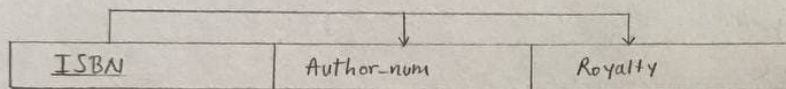 ISBN Author-num Royalty